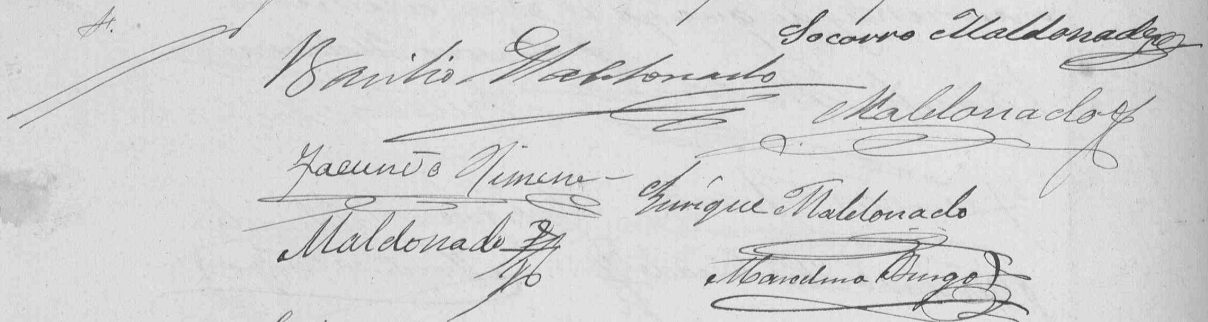 Socorro Maldonado
Basilio Maldonado
Maldonado
Facundo Ximene
Enrique Maldonado
Maldonado
Marcelino Burgos